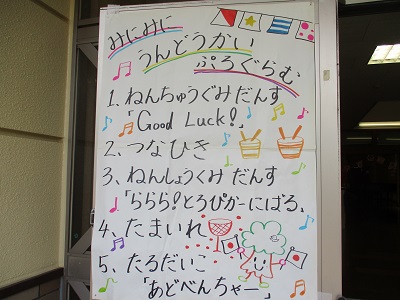 みにみに
うんどうかい
ぷろぐらむ
1、ねんちゅうぐみだんす
「Good Luck!」
2、つなひき
3、ねんしょうぐみ だんす
「ららら！とろぴかーにばる」
4、たまいれ
5、たるだいこ
「あどべんちゃー」